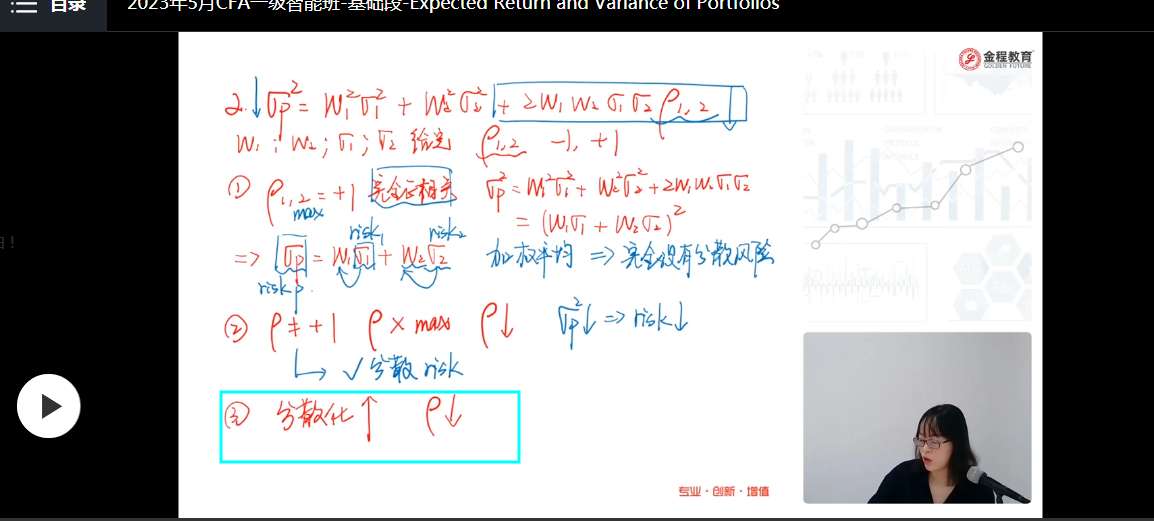 目录 2023年5月CFA一级智能班-基础段-Expected Return and Variance of Portfolios
金程教育
GOLDEN FUTURE
2. ↓σp² = W₁²σ₁² + W₂²σ₂² + 2W₁W₂σ₁σ₂ρ₁,₂ ↓
W₁; W₂; σ₁; σ₂ 给定 ρ₁,₂ -1, +1
① ρ₁,₂ = +1 完全正相关 σp² = W₁²σ₁² + W₂²σ₂² + 2W₁W₂σ₁σ₂
max = (W₁σ₁ + W₂σ₂)²
risk₁ risk₂
=> σp = W₁σ₁ + W₂σ₂ 加权平均 => 完全没有分散风险
risk p.
② ρ ≠ +1 ρ × max ρ↓ σp²↓ => risk↓
↳ √分散 risk
③ 分散化↑ ρ↓
专业·创新·增值